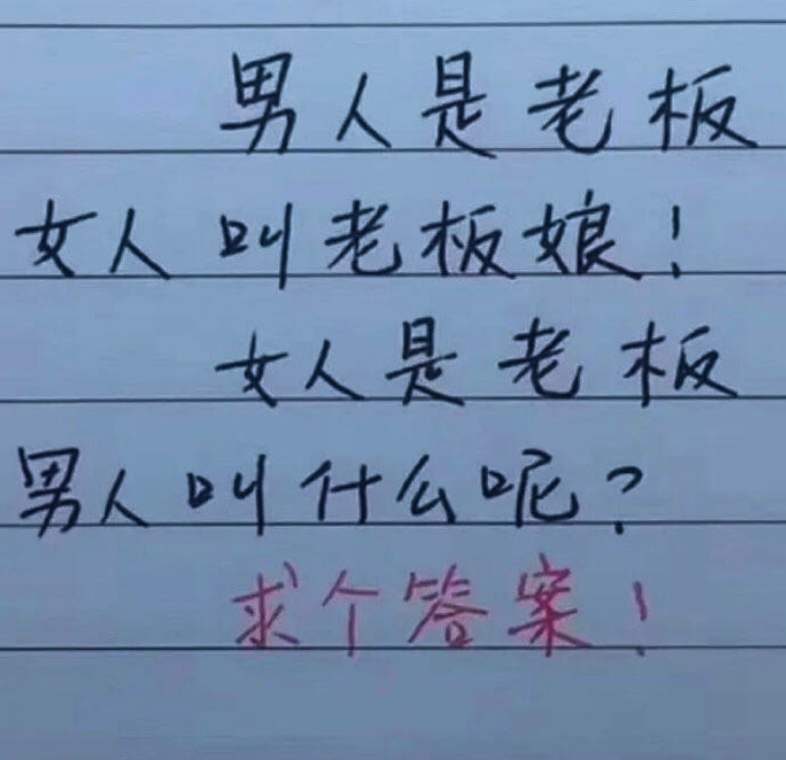 男人是老板
女人叫老板娘!
女人是老板
男人叫什么呢?
求个答案!